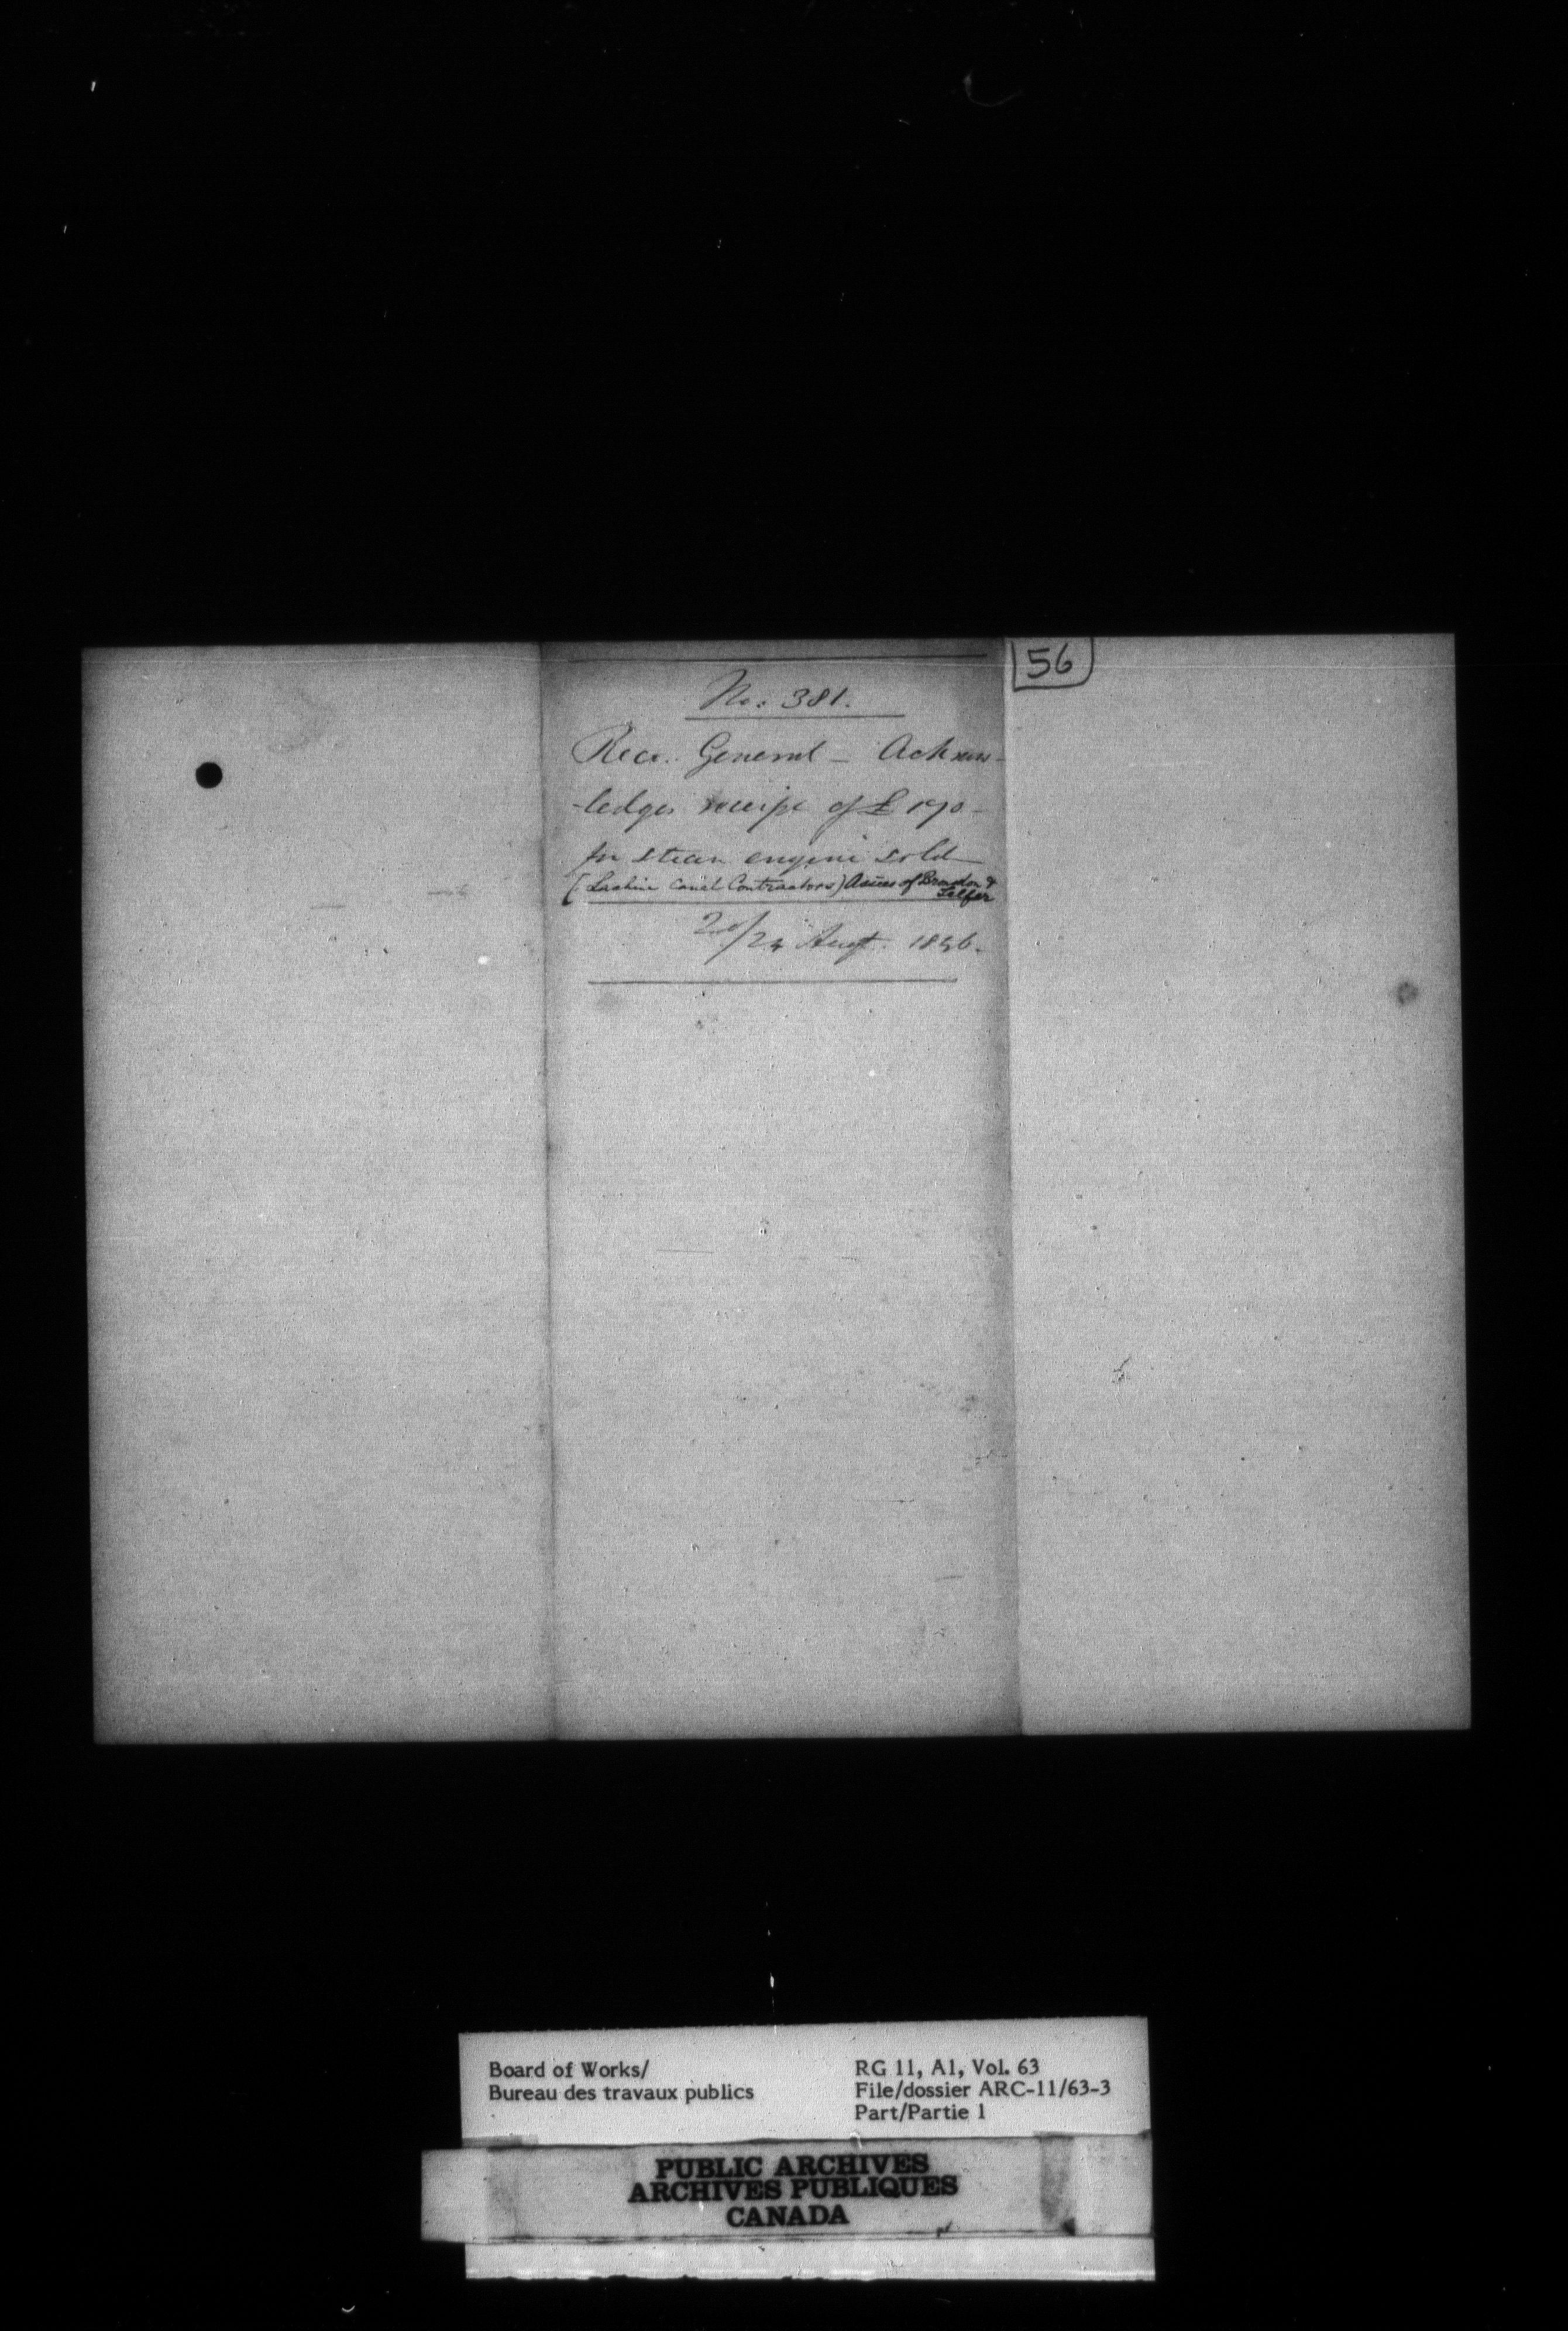 56
No. 381.
Recr. General - Acknow-
-ledges receipt of £ 190 -
for steam engine sold
(Lachine Canal Contractors) Assies of Brandon &
Telfer
20/24 Augt. 1846.
Board of Works/
Bureau des travaux publics
RG 11, A1, Vol. 63
File/dossier ARC-11/63-3
Part/Partie 1
PUBLIC ARCHIVES
ARCHIVES PUBLIQUES
CANADA